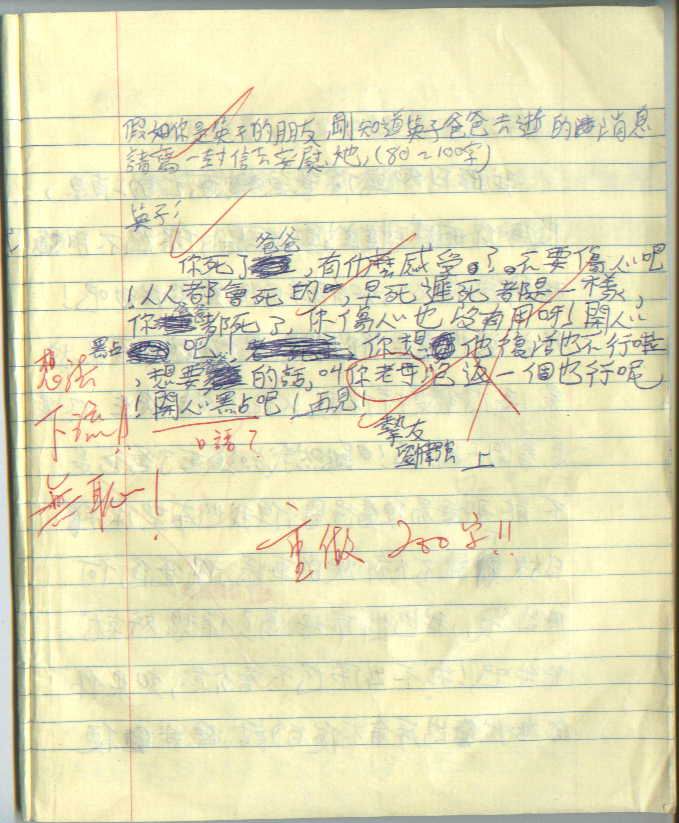 假如你是英子的朋友,剛知道英子爸爸去逝的消息
請寫一封信去安慰她,(80~100字)
英子:
你死了爸爸,有什麼感受。了。不要傷心吧
!人人都會死的,早死遲死都是一樣,
你爸爸都死了,你傷心也沒有用呀!開心
點吧,你想他復活也不行啦
,想要的話,叫你老母包返一個也行呢
!開心點吧!再見!
摯友
上
想法
下流!!
無恥!
口語?
重做 200字!!